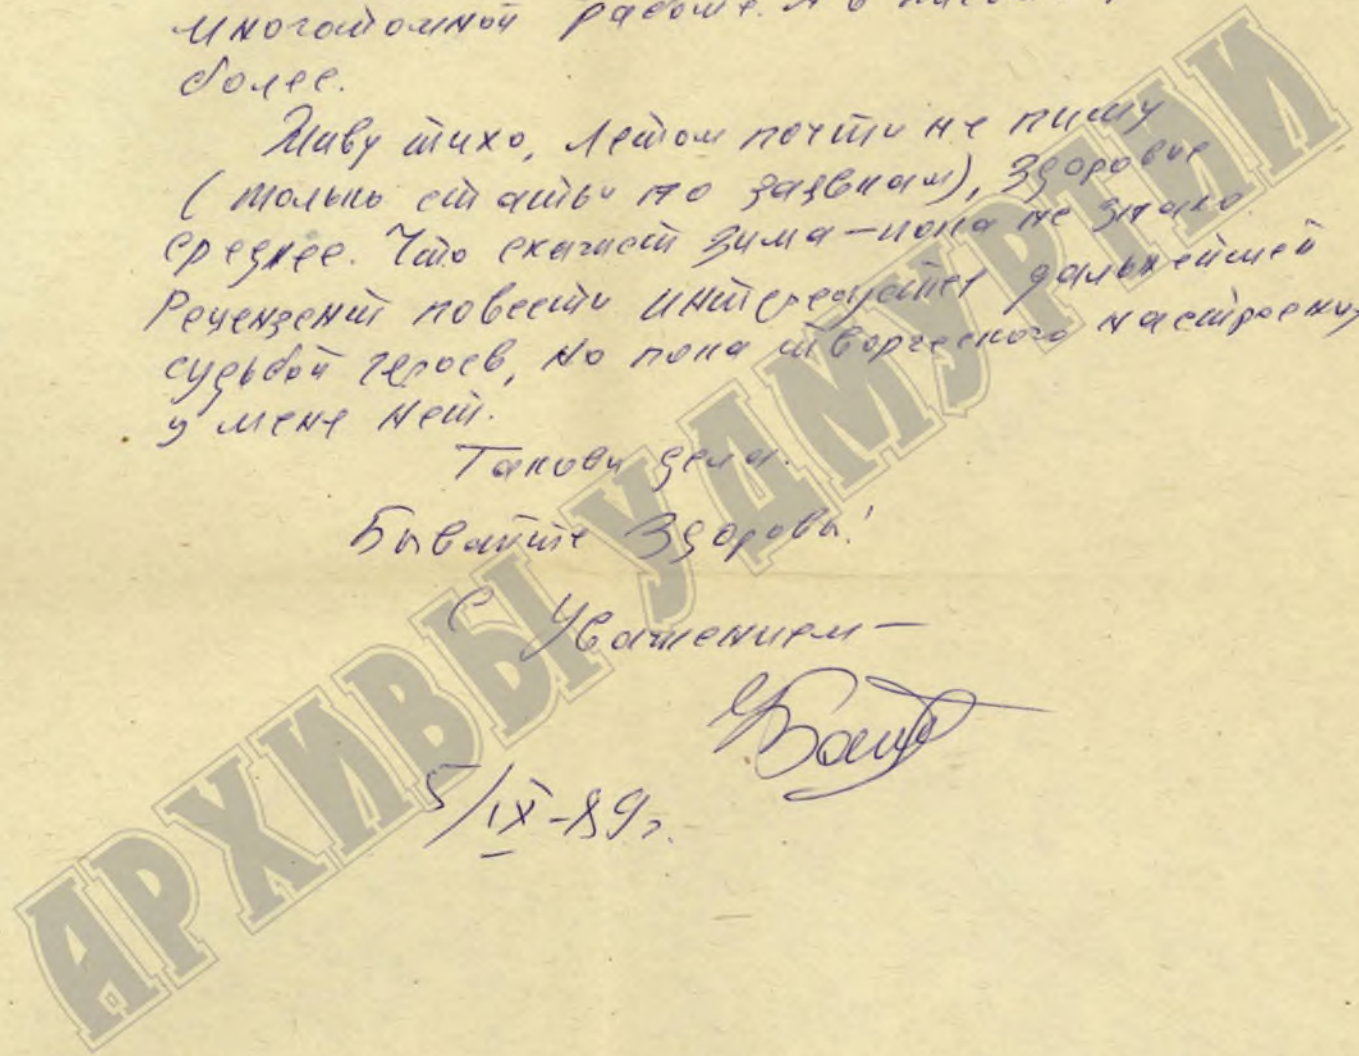 многотомной работе. А в
более.
Живу тихо, летом почти не пишу
(только статьи по заявкам), здоровье
среднее. Что скажет зима — пока не знаю.
Рецензент повести интересуется дальнейшей
судьбой героев, но пока творческого настроения
у меня нет.
Таковы дела.
Бывайте здоровы!
С уважением —
5/IX-89г.
АРХИВЫ УДМУРТИИ